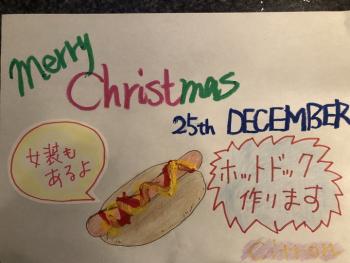 Merry
Christmas
25th DECEMBER
女装も
あるよ
ホットドック
作ります